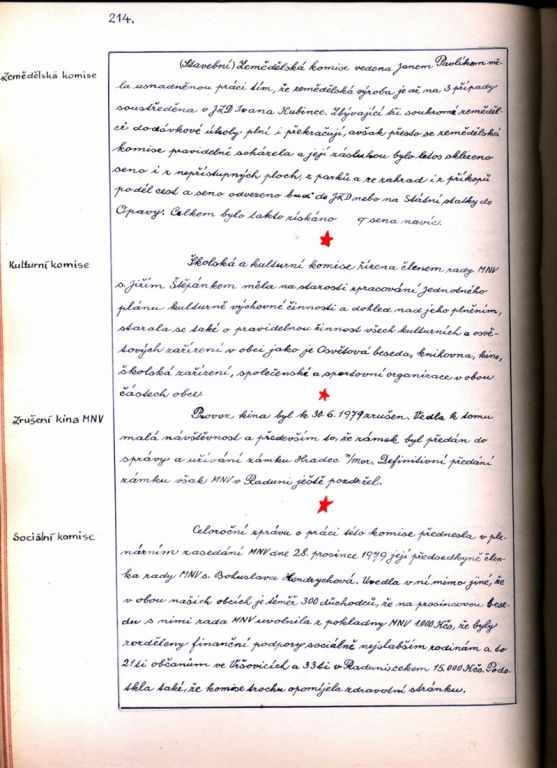 214.
Zemědělská komise
(Stavební) Zemědělská komise vedena Janem Pavlíkem mě-
la usnadněnou práci tím, že zemědělská výroba je až na 3 případy
soustředěna v JZD Ivana Kubince. Zbývající tři soukromě zeměděl-
cé dodávkové úkoly plní i překračují, avšak přesto se zemědělská
komise pravidelně scházela a její zásluhou bylo letos sklizeno
seno i z nepřístupných ploch, z parků a ze zahrad i z příkopů
podél cest a seno odvezeno buď do JZD nebo na Státní statky do
Opavy. Celkem bylo takto získáno q sena navíc.
Kulturní komise
Školská a kulturní komise řízena členem rady MNV
s. Jiřím Štěpánkem měla na starosti zpracování Jednotného
plánu kulturně výchovné činnosti a dohled nad jeho plněním,
starala se také o pravidelnou činnost všech kulturních a osvě-
tových zařízení v obci jako je Osvětová beseda, knihovna, kino,
školská zařízení, společenské a sportovní organizace v obou
částech obce.
Zrušení kina MNV
Provoz kina byl k 30.6.1979 zrušen. Vedla k tomu
malá návštěvnost a především to, že zámek byl předán do
správy a užívání zámku Hradec n/Mor. Definitivní předání
zámku však MNV v Raduni ještě pozdržel.
Sociální komise
Celoroční zprávu o práci této komise přednesla v ple-
nárním zasedání MNV dne 28. prosince 1979 její předsedkyně člen-
ka rady MNV s. Bohuslava Hendrychová. Uvedla v ní mimo jiné, že
v obou našich obcích je téměř 300 důchodců, že na prosincovou bese-
du s nimi rada MNV uvolnila z pokladny MNV 1.000 Kčs, že byly
rozděleny finanční podpory sociálně nejslabším rodinám a to
21 ti občanům ve Vršovicích a 33 ti v Raduni s cekem 15.000 Kčs. Podo-
tkla také, že komise trochu opomíjela zdravotní stránku.